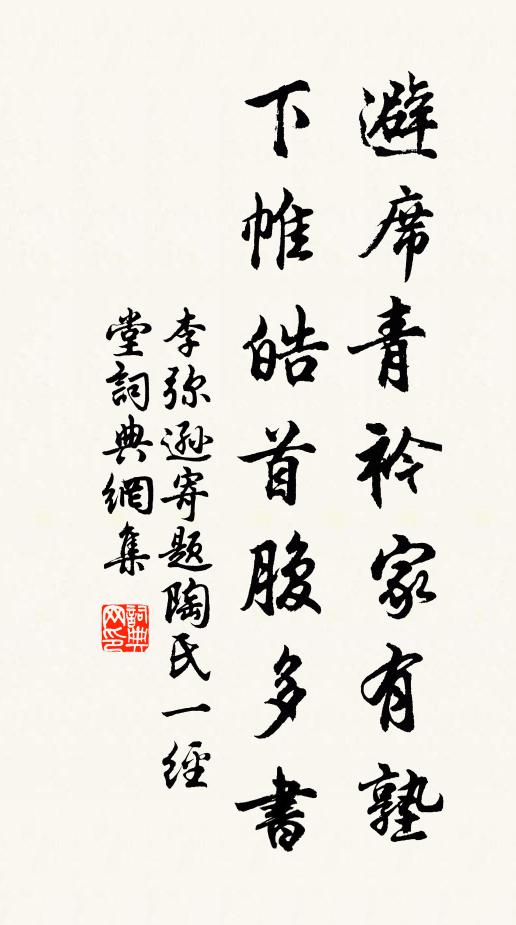 避席青衿家有塾
下帷皓首腹多書
李弥遜寄題陶氏一經
堂詞典網集
詞典网印